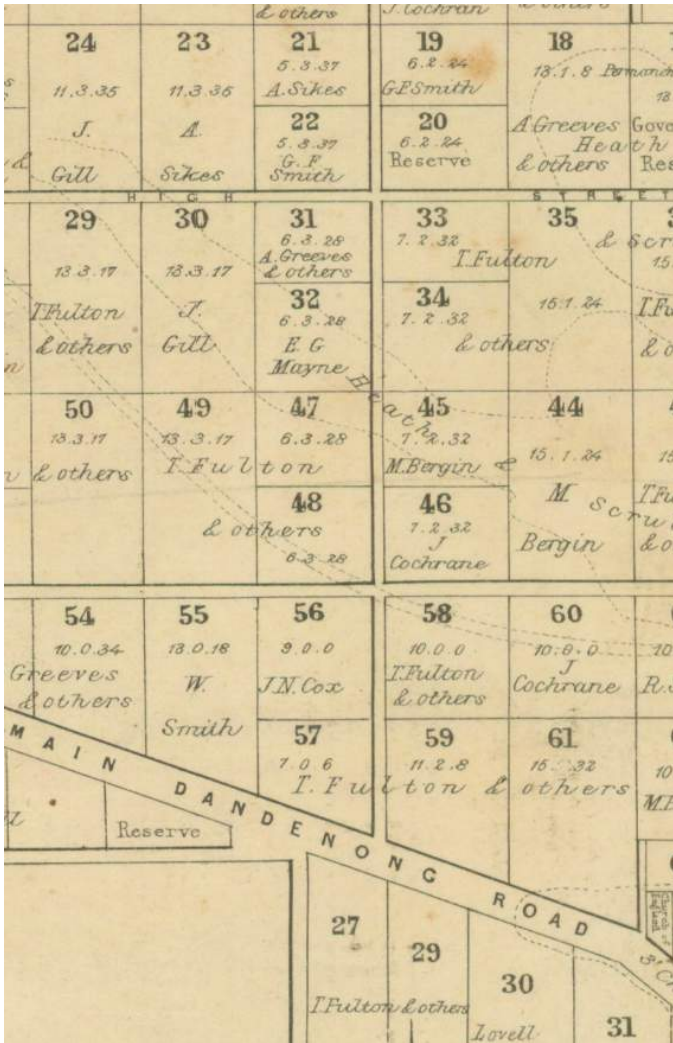 & others
J. Cochran
24
11.3.35
J.
Gill
23
11.3.35
A.
Sikes
21
5.3.37
A. Sikes
22
5.3.37
G. F.
Smith
19
6.2.24
G.F. Smith
20
6.2.24
Reserve
18
13.1.8
A Greeves
& others
Heath
Permanent
Gove
Res
HIGH STREET
29
13.3.17
T. Fulton
& others
30
13.3.17
J.
Gill
31
6.3.28
A. Greeves
& others
32
6.3.28
E G
Mayne
33
7.2.32
T. Fulton
34
7.2.32
& others
35
15.1.24
& Scr
T. Fu
& o
50
13.3.17
& others
49
13.3.17
T. Fulton
47
6.3.28
48
& others
6.3.28
Heath & Scru
45
7.2.32
M. Bergin
46
7.2.32
J
Cochrane
44
15.1.24
M
Bergin
T. Fu
& o
54
10.0.34
Greeves
& others
55
13.0.18
W.
Smith
56
9.0.0
J.N. Cox
57
7.0.6
T. Fulton & others
58
10.0.0
T. Fulton
& others
59
11.2.8
60
10.0.0
J
Cochrane
61
R.
10
M.B
MAIN DANDENONG ROAD
Reserve
Church of
England
27
29
T. Fulton & others
30
Lovell
31